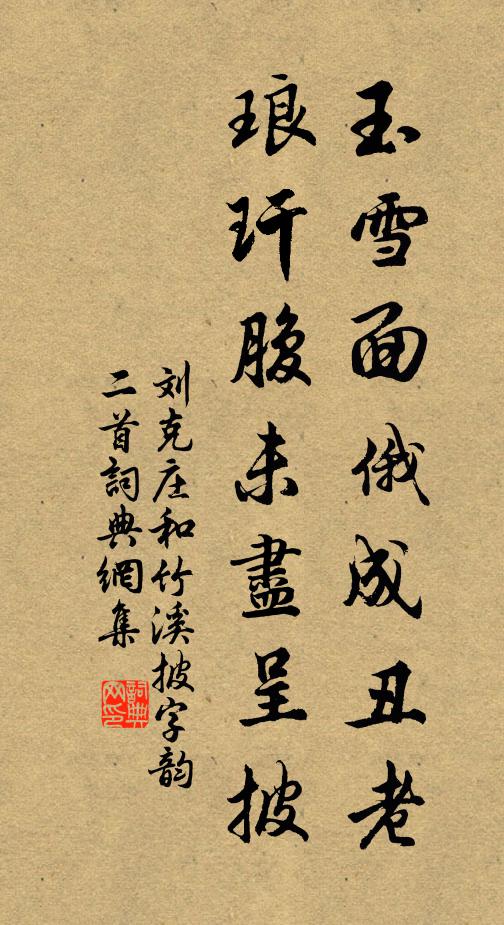 玉雪面俄成丑老
琅玕腹未盡呈披
刘克庄和竹溪披字韵
二首詞典網集
詞典
网印